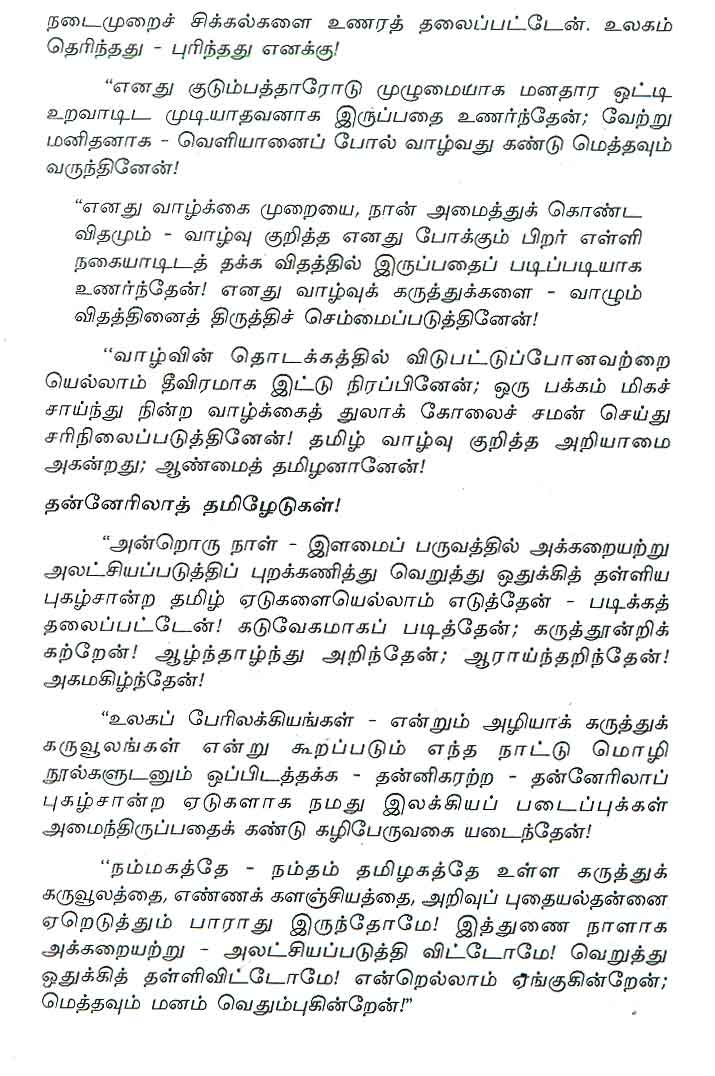 நடைமுறைச் சிக்கல்களை உணரத் தலைப்பட்டேன். உலகம்
தெரிந்தது – புரிந்தது எனக்கு!
“எனது குடும்பத்தாரோடு முழுமையாக மனதார ஒட்டி
உறவாடிட முடியாதவனாக இருப்பதை உணர்ந்தேன்; வேற்று
மனிதனாக – வெளியானைப் போல் வாழ்வது கண்டு மெத்தவும்
வருந்தினேன்!
“எனது வாழ்க்கை முறையை, நான் அமைத்துக் கொண்ட
விதமும் – வாழ்வு குறித்த எனது போக்கும் பிறர் எள்ளி
நகையாடிடத் தக்க விதத்தில் இருப்பதைப் படிப்படியாக
உணர்ந்தேன்! எனது வாழ்வுக் கருத்துக்களை – வாழும்
விதத்தினைத் திருத்திச் செம்மைப்படுத்தினேன்!
‘‘வாழ்வின் தொடக்கத்தில் விடுபட்டுப்போனவற்றை
யெல்லாம் தீவிரமாக இட்டு நிரப்பினேன்; ஒரு பக்கம் மிகச்
சாய்ந்து நின்ற வாழ்க்கைத் துலாக் கோலைச் சமன் செய்து
சரிநிலைப்படுத்தினேன்! தமிழ் வாழ்வு குறித்த அறியாமை
அகன்றது; ஆண்மைத் தமிழனானேன்!
தன்னேரிலாத் தமிழேடுகள்!
“அன்றொரு நாள் – இளமைப் பருவத்தில் அக்கறையற்று
அலட்சியப்படுத்திப் புறக்கணித்து வெறுத்து ஒதுக்கித் தள்ளிய
புகழ்சான்ற தமிழ் ஏடுகளையெல்லாம் எடுத்தேன் – படிக்கத்
தலைப்பட்டேன்! கடுவேகமாகப் படித்தேன்; கருத்தூன்றிக்
கற்றேன்! ஆழ்ந்தாழ்ந்து அறிந்தேன்; ஆராய்ந்தறிந்தேன்!
அகமகிழ்ந்தேன்!
“உலகப் பேரிலக்கியங்கள் – என்றும் அழியாக் கருத்துக்
கருவூலங்கள் என்று கூறப்படும் எந்த நாட்டு மொழி
நூல்களுடனும் ஒப்பிடத்தக்க – தன்னிகரற்ற – தன்னேரிலாப்
புகழ்சான்ற ஏடுகளாக நமது இலக்கியப் படைப்புக்கள்
அமைந்திருப்பதைக் கண்டு கழிபேருவகை யடைந்தேன்!
‘‘நம்மகத்தே – நம்தம் தமிழகத்தே உள்ள கருத்துக்
கருவூலத்தை, எண்ணக் களஞ்சியத்தை, அறிவுப் புதையல்தன்னை
ஏறெடுத்தும் பாராது இருந்தோமே! இத்துணை நாளாக
அக்கறையற்று – அலட்சியப்படுத்தி விட்டோமே! வெறுத்து
ஒதுக்கித் தள்ளிவிட்டோமே! என்றெல்லாம் ஏங்குகின்றேன்;
மெத்தவும் மனம் வெதும்புகின்றேன்!”